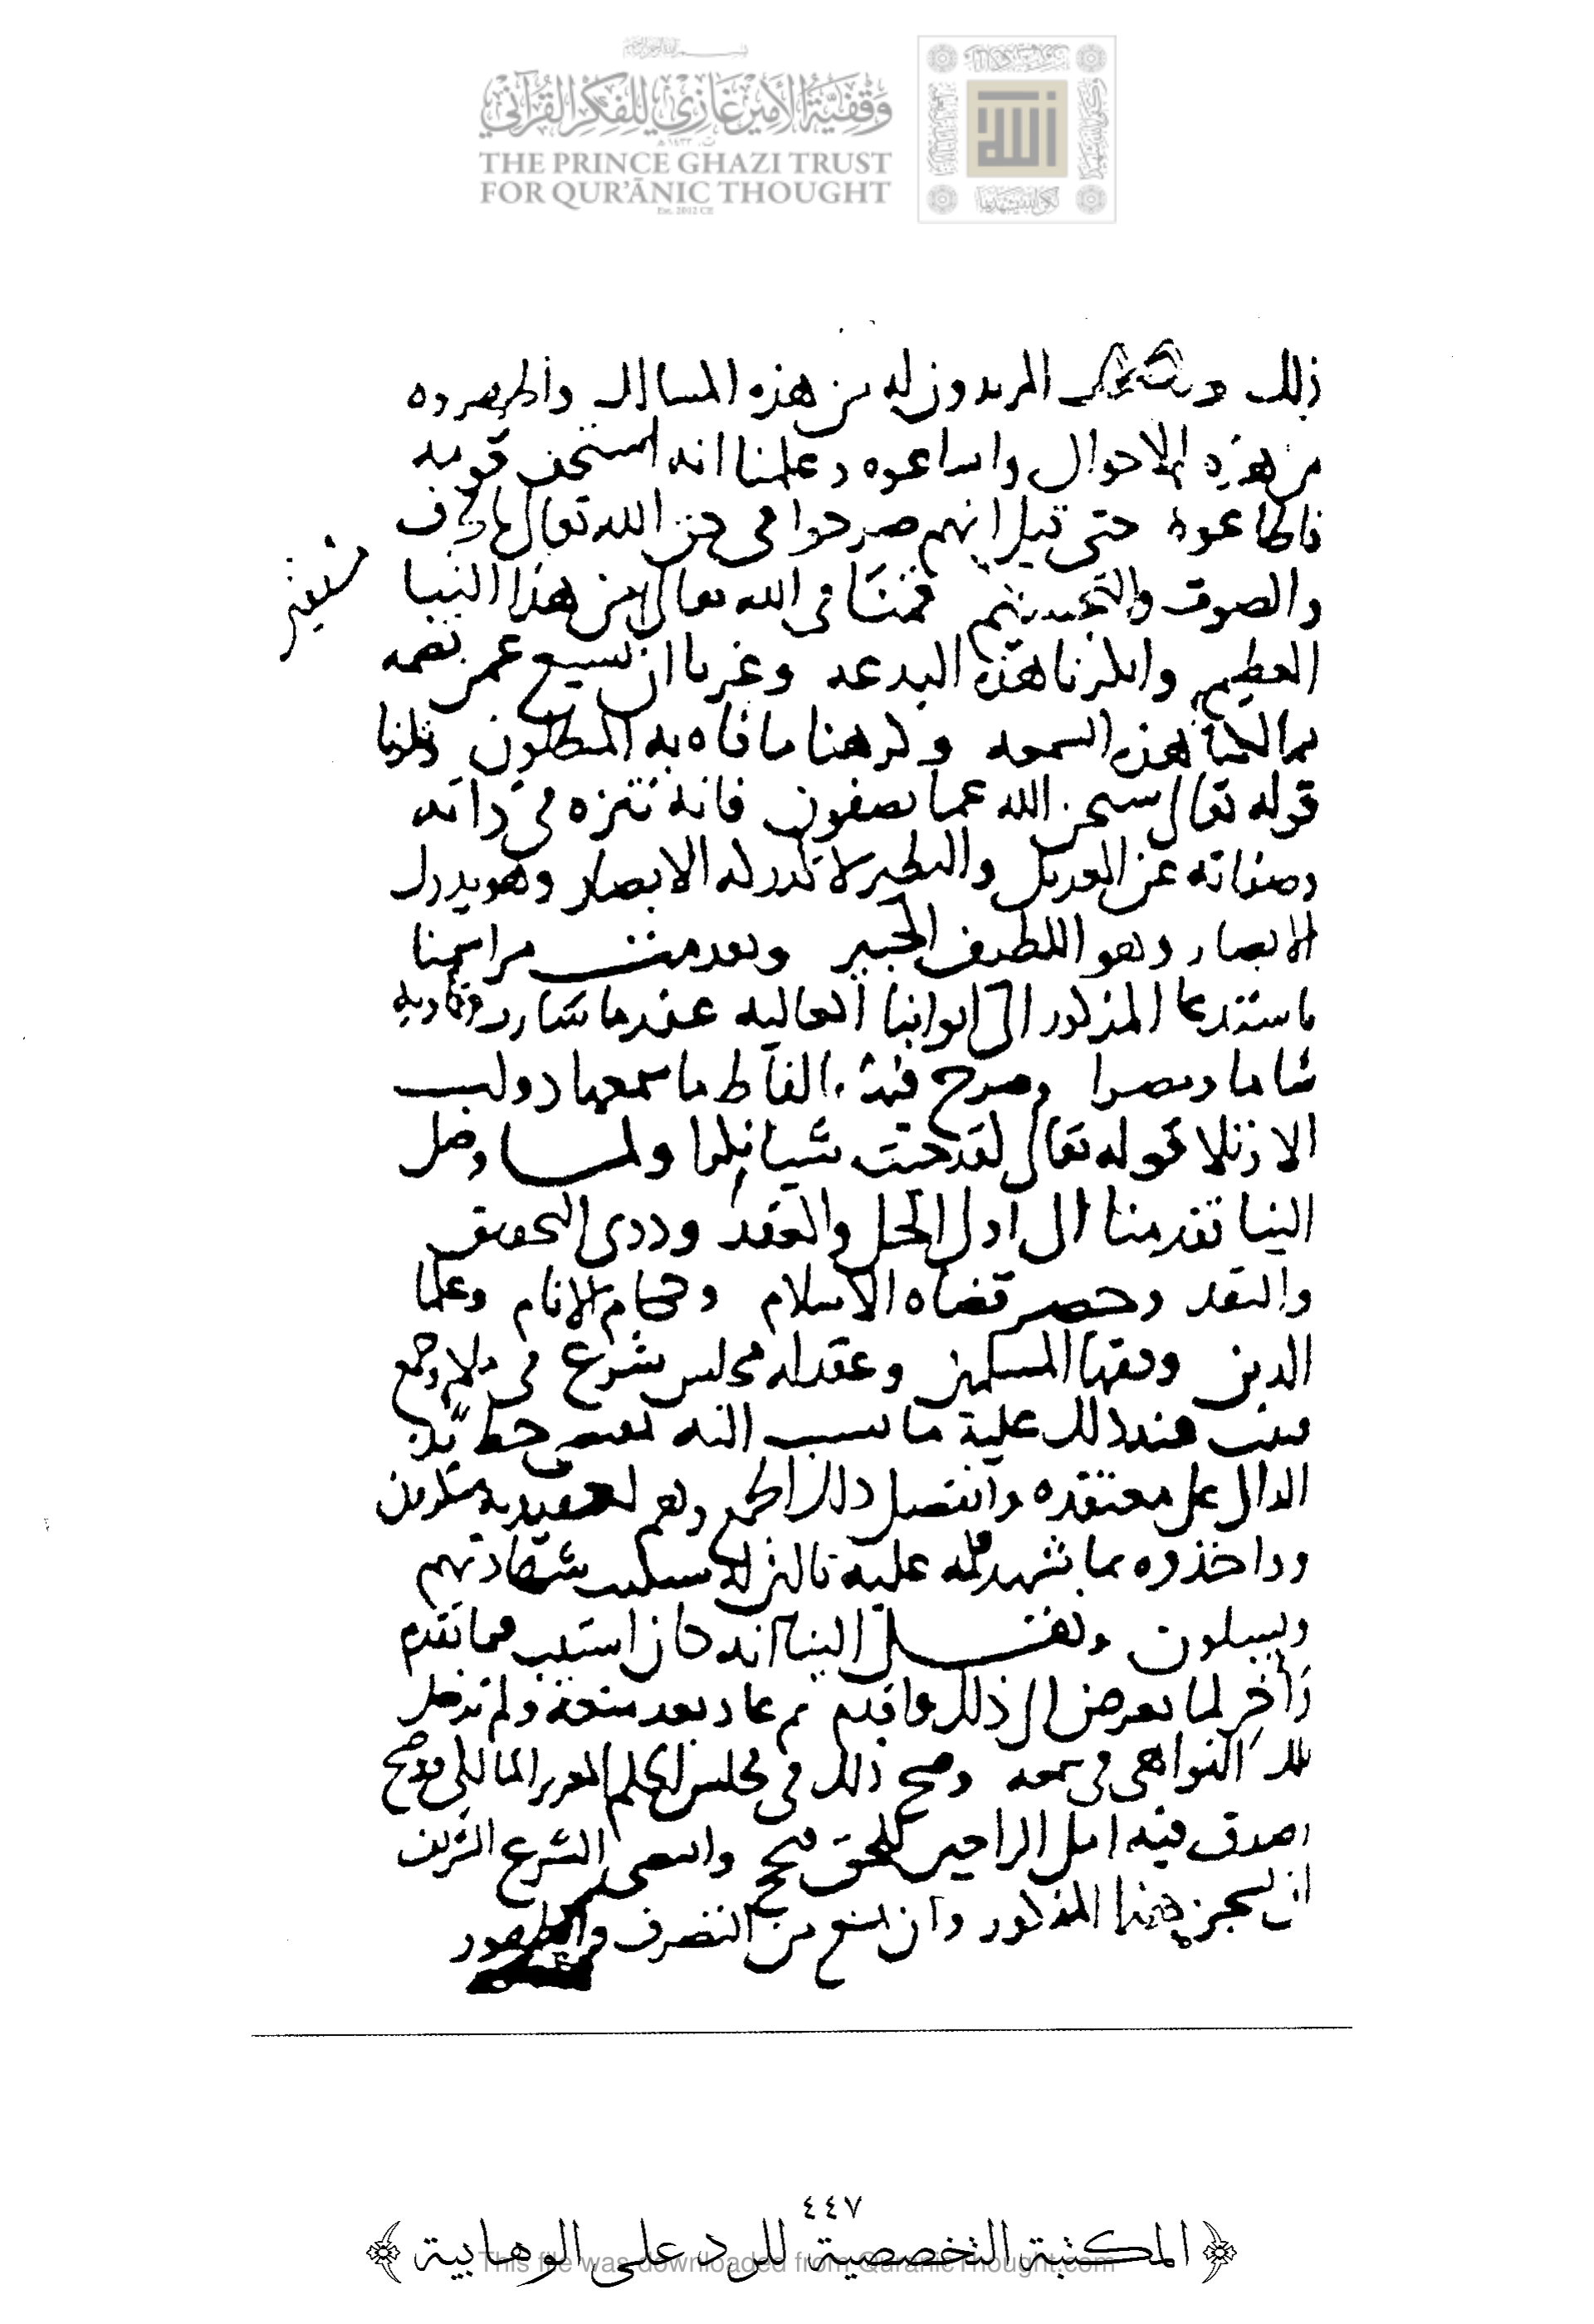 بسم الله الرحمن الرحيم
وقفية الأمير غازي للفكر القرآني
THE PRINCE GHAZI TRUST
FOR QUR'ĀNIC THOUGHT
Est. 2012 CE
الله
ذلك المريدون له من هذه المسالك واظهروه
من هذه الاحوال واساعوه وعلمنا انه استخف قومه
فاطاعوه حتى قيل انهم صرحوا في حق الله تعالى بالحرف
والصوت والتجسيم فقمنا في الله تعالى من هذا النبا
العظيم وانكرنا هذه البدعه وغرنا ان يسيع عمن تضمه
ممالكنا هذه السمعه وكرهنا ما فاه به المبطلون وتلونا
قوله تعالى سبحن الله عما يصفون فانه تنزه في ذاته
وصفاته عن العديل والنظير لا تدركه الابصار وهو يدرك
الابصار وهو اللطيف الخبير وتقدمت مراسمنا
باستدعا المذكور الى ابوابنا العاليه عندما سارت فتاويه
شاما ومصرا وصرح فيها بالفاظ ما سمعها ذو لب
الا وتلا قوله تعالى لقد جيت شيا نكرا ولما وصل
الينا تقدمنا الى اولى الحل والعقد وذوى التحقيق
والنقد وحضر قضاه الاسلام وحكام الانام وعلما
الدين وفقها المسلمين وعقد له مجلس شرع في ملا وجمع
فثبت عند ذلك عليه ما نسب اليه بمقتضى خط يده
الدال على معتقده وانفصل ذلك الجمع وهم لعقيدته منكرون
وواخذوه بما شهد قلمه عليه تالين له ستكتب شهادتهم
ويسيلون ونقل الينا انه كان استتيب فيما تقدم
واخر لما تعرض الى ذلك واقدم ثم عاد بعد منعه ولم تدخل
تلك النواهي في سمعه وصح ذلك في مجلس الحاكم المالكي
الشرع الشريف
ان يسجن هذا المذكور وان يمنع من التصرف والظهور
٤٤٧
المكتبة التخصصية للرد على الوهابية
This file was downloaded from QuranicThought.com